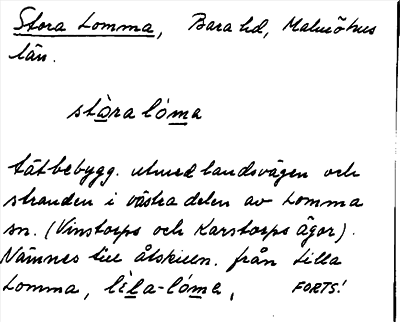 Stora Lomma, Bara hd, Malmöhus
län.
stòra lóma
tätbebygg. utmed landsvägen och
stranden i västra delen av Lomma
sn. (Vinstorps och Karstorps ägor).
Nämnes till åtskilln. från Lilla
Lomma, lìla-lóma, FORTS!